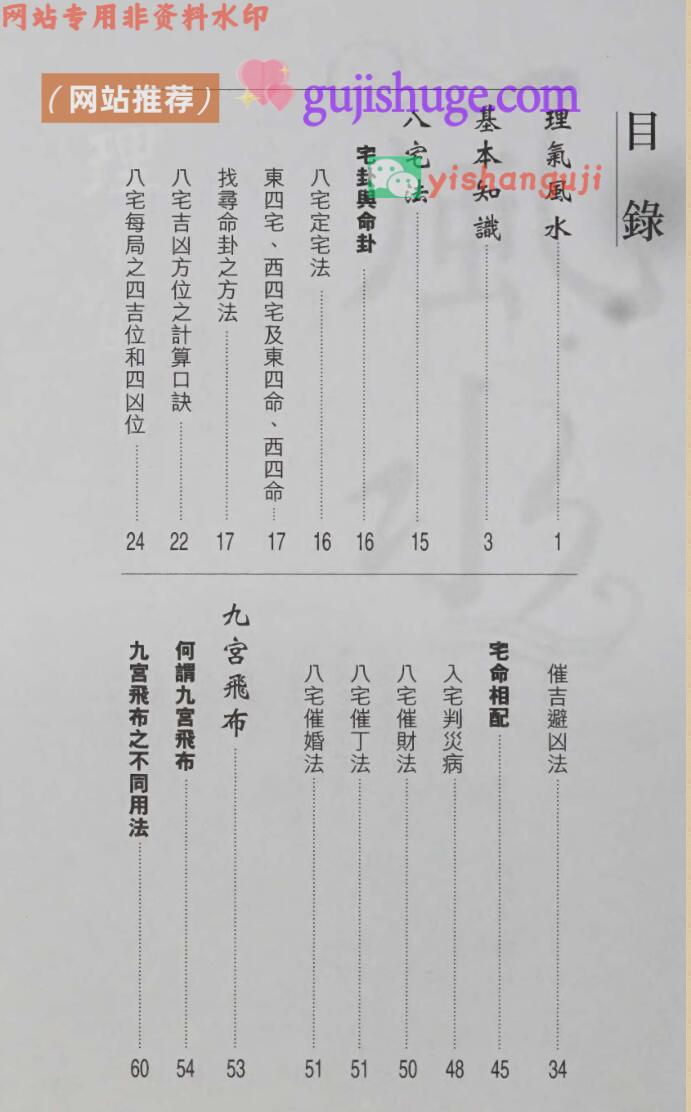 网站专用非资料水印
(网站推荐)
gujishuge.com
yishanguji
目錄
理氣風水 1
基本知識 3
八宅法 15
宅卦與命卦 16
八宅定宅法 16
東四宅、西四宅及東四命、西四命 17
找尋命卦之方法 17
八宅吉凶方位之計算口訣 22
八宅每局之四吉位和四凶位 24
催吉避凶法 34
宅命相配 45
入宅判災病 48
八宅催財法 50
八宅催丁法 51
八宅催婚法 51
九宮飛布 53
何謂九宮飛布 54
九宮飛布之不同用法 60